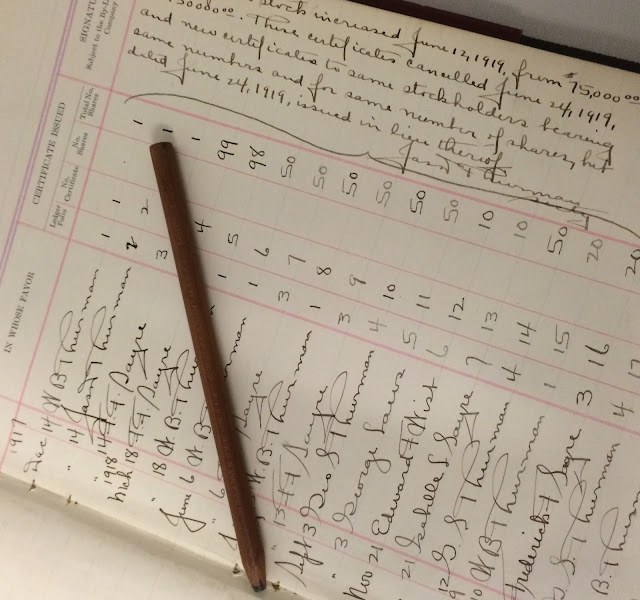 stock increased June 12, 1919, from $75,000.00
These certificates cancelled June 24, 1919,
and new certificates to same stockholders bearing
same numbers and for same number of shares, but
dated June 24, 1919, issued in lieu thereof
Jas F Thurman
SIGNATU
Subject to the By-L
Company
CERTIFICATE ISSUED
Ledger Folio
No. Certificate
No. Shares
Total No. Shares
IN WHOSE FAVOR
1917
Dec 14 W B Thurman 1 1 1
" 14 Jas F Thurman 2 2 1
1918
14 F F Sayre 3 1
Mch 18 F F Sayre 4 99
" 18 W B Thurman 1 5 98
June 6 W B Thurman 1 6 50
6 Sayre 3 7 50
W B Thurman 1 8 50
13 F F Sayre 3 9 50
Sept 3 Geo S Thurman 4 10 50
" 3 George 5 11 50
Nov 21 Edward F Wist 6 12 10
" 21 Isabelle S Sayre 7 13 10
S Thurman 4 14 50
W B Thurman 1 15 20
Frederick F Sayre 3 16 20
S Thurman 4 17
B. Thurman